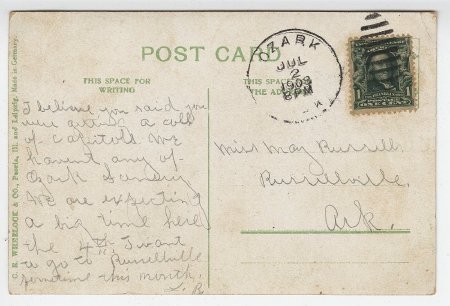 POST CARD
THIS SPACE FOR
WRITING
THIS SPACE
THE AD
OZARK
JUL
2
6 PM
1
1
C. R. WHEELOCK & CO., Peoria, Ill. and Leipzig. Made in Germany.
I believe you said you
were getting a coll
of Capitols. We
havent any of
Ozark Scenery
We are expecting
a big time here
the 4th. I want
to go to Russellville
sometime this month.
L. R
Miss May Russell.
Russellville.
Ark.